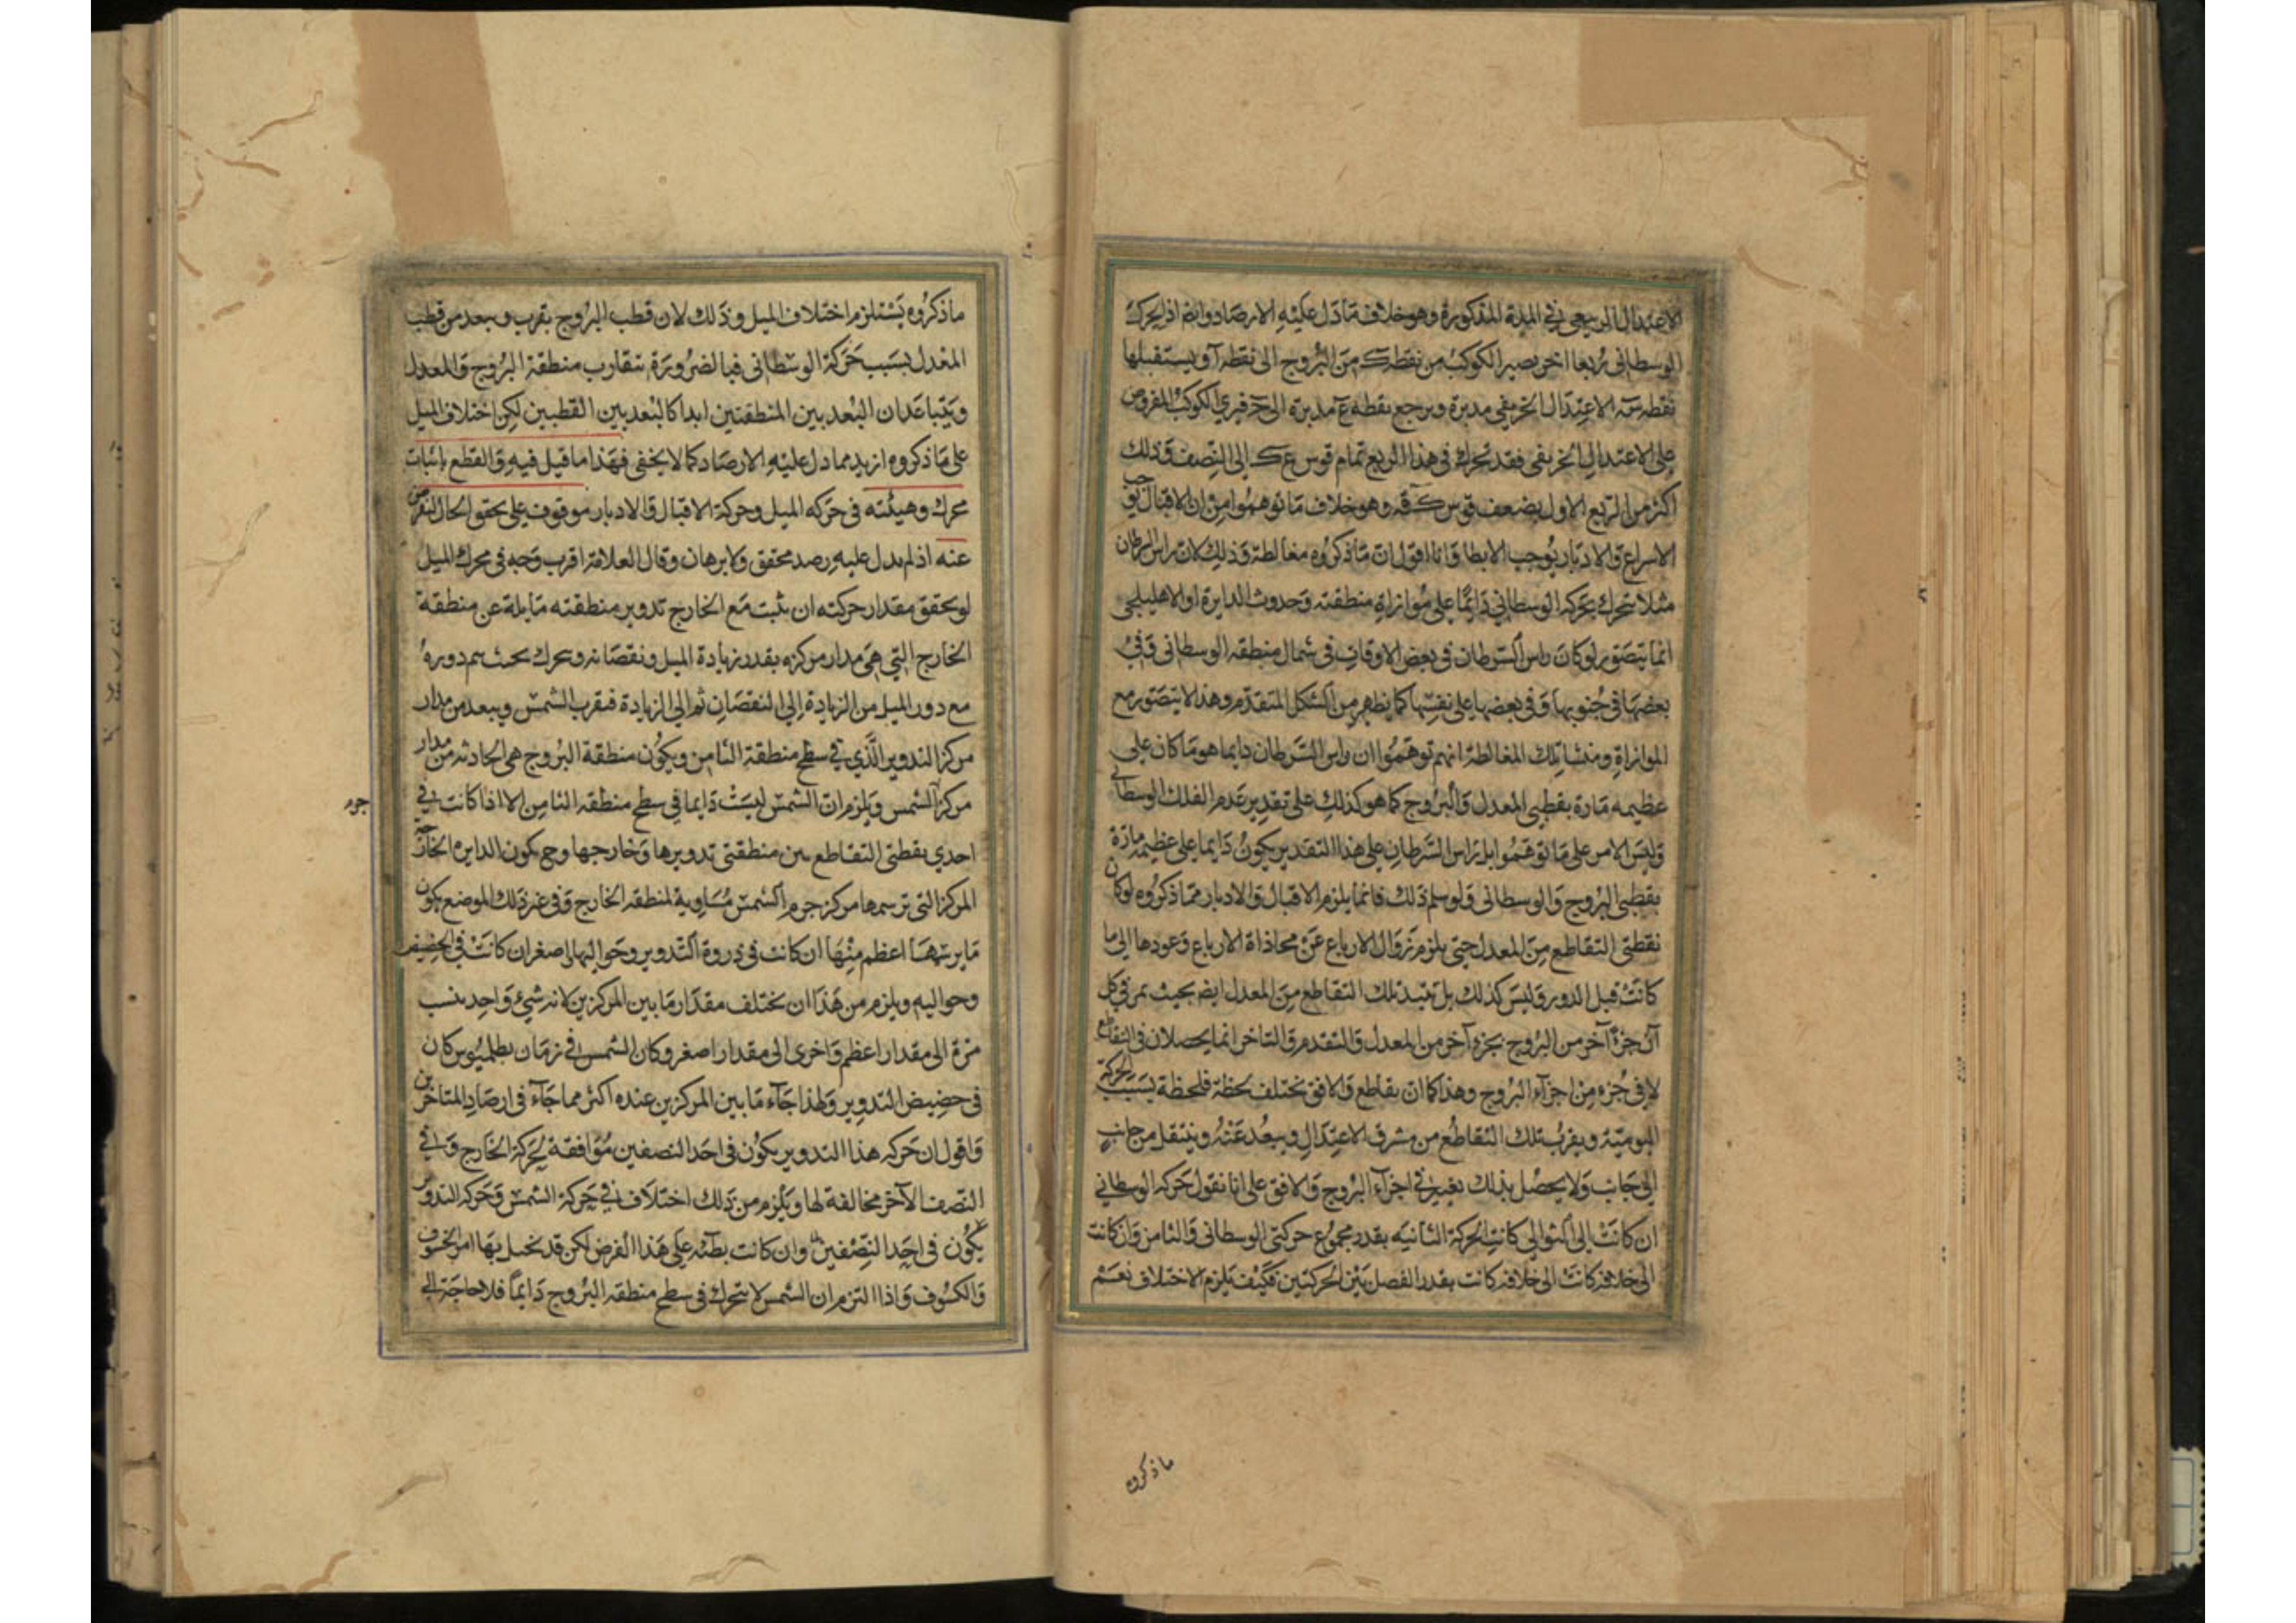 الاعتدال الربيعي في المدة المذكورة وهو خلاف ما دل عليه الارصاد وايضا اذا تحرك
الوسطاني ربعا اخر يصير الكوكب من نقطة ك من البروج الى نقطة آ ويستقبلها
نقطة الاعتدال الخريفي مدبرة ويرجع نقطة ع مدبرة الى فيرى الكوكب المفروض
على الاعتدال الخريفي فقد تحرك في هذا الربع تمام قوس ع ك الى النصف وذلك
اكثر من الربع الاول بضعف قوس وهو خلاف ما توهموا من ان الاقبال يوجب
الاسراع والادبار يوجب الابطا وانا اقول ان ما ذكروه مغالطة وذلك لان راس السرطان
مثلا يتحرك بحركة الوسطاني دائما على موازاة منطقته وحدوث الدايرة او الاهليلجي
انما يتصور لو كان راس السرطان في بعض الاوقات في شمال منطقة الوسطاني وفي
بعضها في جنوبها وفي بعضها على نفسها كما يظهر من الشكل المتقدم وهذا لا يتصور مع
الموازاة ومنشا تلك المغالطة انهم توهموا ان راس السرطان دايما هو ما كان على
عظيمة مارة بقطبي المعدل والبروج كما هو كذلك على تقدير عدم الفلك الوسطاني
وليس الامر على ما توهموا بل راس السرطان على هذا التقدير يكون دايما على عظيمة مارة
بقطبي البروج والوسطاني ولو سلم ذلك فانما يلزم الاقبال والادبار مما ذكروه لو كان
نقطتي التقاطع من المعدل حتى يلزم زوال الارباع عن محاذاة الارباع وعودها الى ما
كانت قبل الدور وليس كذلك بل تتبدل تلك التقاطع من المعدل ايضا بحيث يمر في كل
آن جزء آخر من البروج بجزء آخر من المعدل والتقدم والتاخر انما يحصلان في التقاطع
لا في جزء من اجزاء البروج وهذا كما ان تقاطع والافق تختلف لحظة فلحظة بسبب الحركة
اليومية ويقرب تلك التقاطع من مشرق الاعتدال ويبعد عنه وينتقل من جانب
الى جانب ولا يحصل بذلك تغيير في اجزاء البروج والافق على انا نقول حركة الوسطاني
ان كانت الى التوالي كانت الحركة الثانية بقدر مجموع حركتي الوسطاني والثامن وان كانت
الى خلافه كانت الى خلافه كانت بقدر الفصل بين الحركتين فكيف يلزم الاختلاف نعم
ما ذكروه
ما ذكروه يستلزم اختلاف الميل وذلك لان قطب البروج يقرب ويبعد من قطب
المعدل بسبب حركة الوسطاني فبالضرورة يتقارب منطقة البروج والمعدل
ويتباعدان البعد بين المنطقتين ابدا كالبعد بين القطبين لكن اختلاف الميل
على ما ذكروه ازيد مما دل عليه الارصاد كما لا يخفى فهذا ما قيل فيه والقطع باثبات
محرك وهيئته في حركة الميل وحركة الاقبال والادبار موقوف على تحقق الحال
عنه اذ لم يدل عليه رصد محقق ولا برهان وقال العلامة اقرب وجه في محرك الميل
لو تحقق مقدار حركته ان يثبت مع الخارج تدوير منطقته مايلة عن منطقة
الخارج التي هي مدار مركزه بقدر زيادة الميل ونقصانه ويتحرك بحيث يتم دوره
مع دور الميل من الزيادة الى النقصان ثم الى الزيادة فيقرب الشمس ويبعد من مدار
مركز التدوير الذي في سطح منطقة الثامن ويكون منطقة البروج هي الحادثة من مدار
مركز الشمس ويلزم ان الشمس ليست دايما في سطح منطقة الثامن الا اذا كانت في
احدى نقطتي التقاطع بين منطقتي تدويرها وخارجها وح يكون الدايرة الخارجة
المركز التي ترسمها مركز جرم الشمس مساوية لمنطقة الخارج وفي غير ذلك الموضع يكون
ما يرسمها اعظم منها ان كانت في ذروة التدوير وحواليها واصغر ان كانت في الحضيض
وحواليه ويلزم من هذا ان يختلف مقدار ما بين المركزين لانه شيء واحد ينسب
مرة الى مقدار اعظم واخرى الى مقدار اصغر وكان الشمس في زمان بطلميوس كان
في حضيض التدوير ولهذا جاء ما بين المركزين عنده اكثر مما جاء في ارصاد المتاخرين
واقول ان حركة هذا التدوير يكون في احد النصفين موافقة لحركة الخارج وفي
النصف الآخر مخالفة لها ويلزم من ذلك اختلاف في حركة الشمس وحركة التدوير
يكون في احد النصفين وان كانت بطيئة على هذا الفرض لكن قد يختل بها امر الخسوف
والكسوف واذا التزم ان الشمس لا يتحرك في سطح منطقة البروج دايما فلا حاجة الى